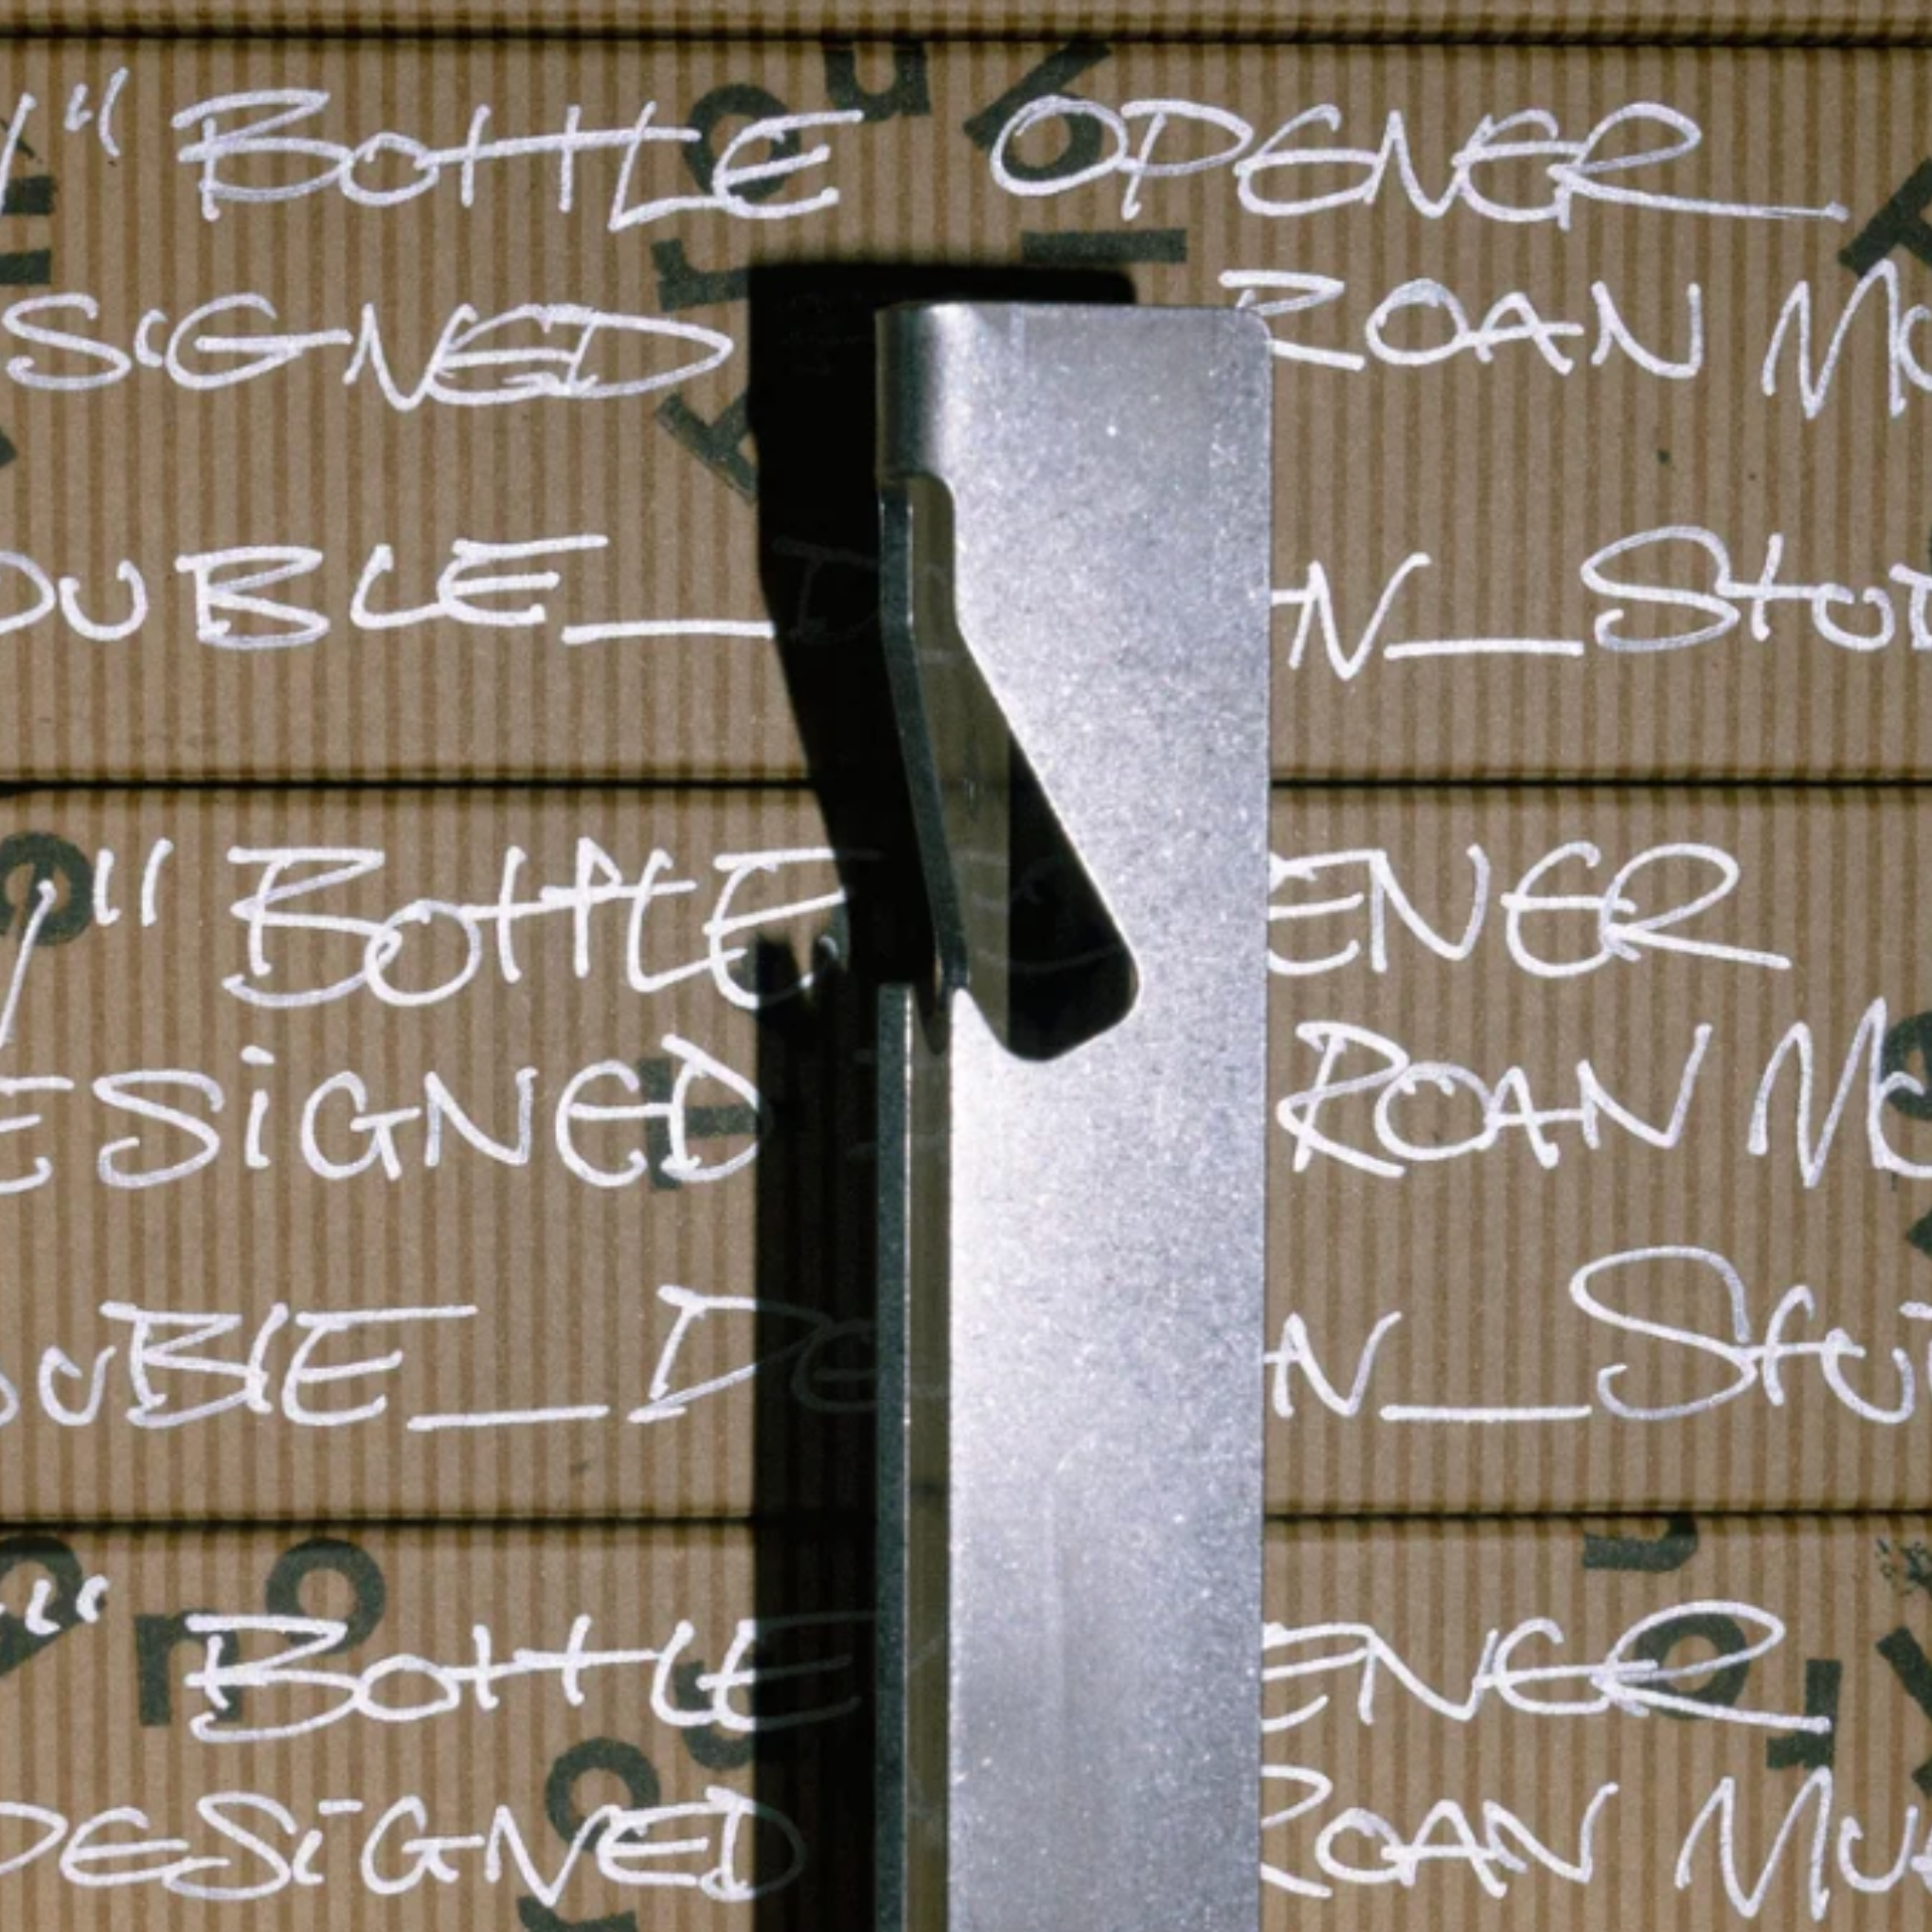 " BOTTLE OPENER
SIGNED ROAN M
OUBLE_D N_STUD
" BOTTLE ENER
ESIGNED ROAN MU
OUBLE_DE N_STU
" BOTTLE ENER
DESIGNED ROAN MU